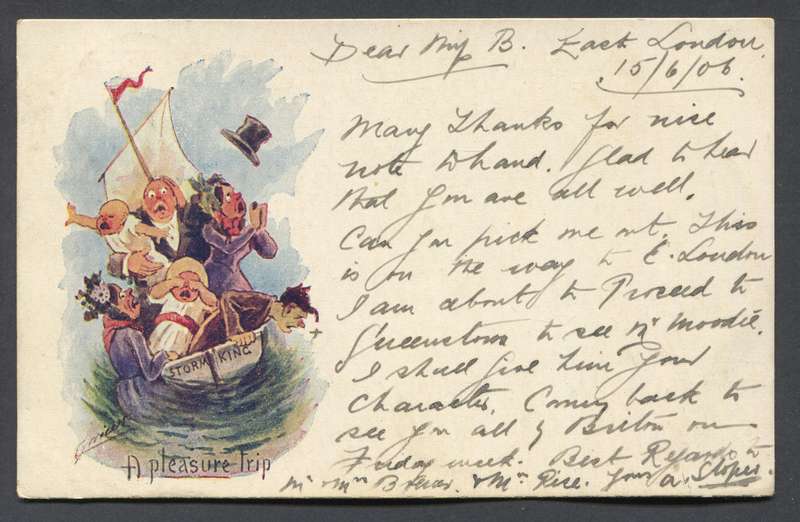 Dear Miss B. East London.
15/6/06.
Many Thanks for nice
note to hand. Glad to hear
that you are all well.
Can you pick me out. This
is on the way to E. London
I am about to Proceed to
Queenstown to see Mr Moodie.
I shall give him your
Character. Coming back to
see you all
Friday week. Best Regards to
Mr & Mrs & Mrs Rice. Yours a. Sloper.
STORM KING
A pleasure trip